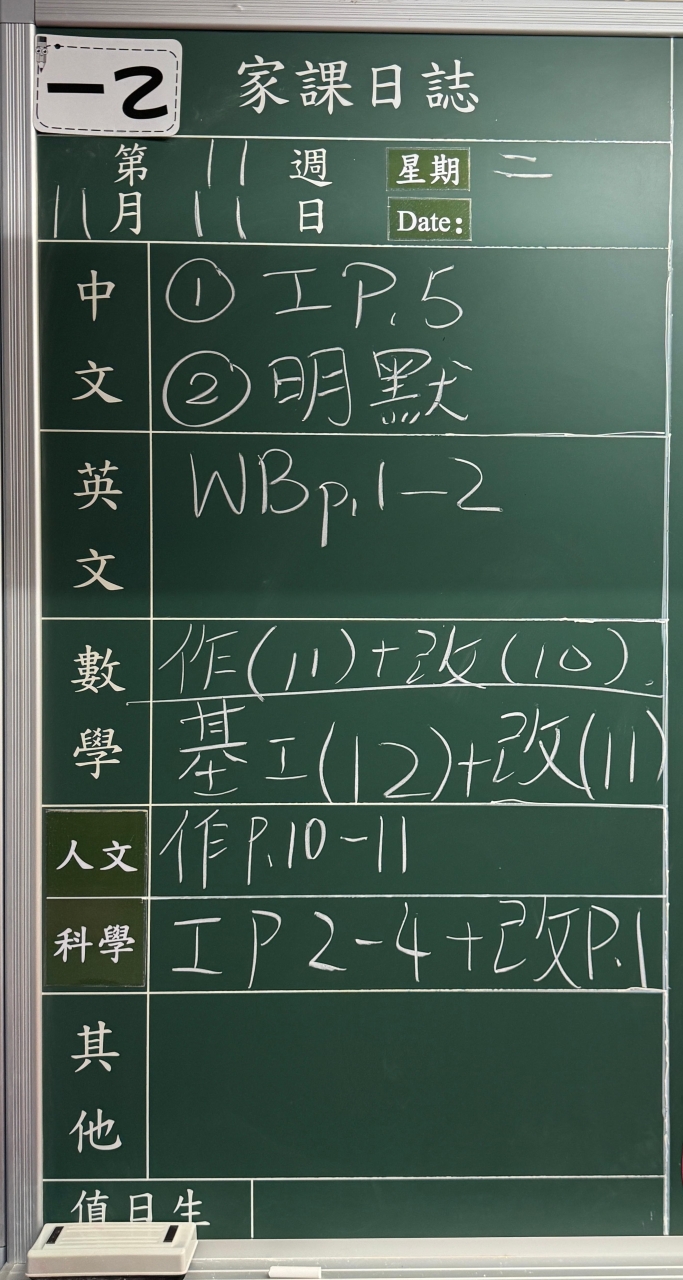 一乙
家課日誌
第 11 週 星期 二
11月 11 日 Date:
中文 ① 工P.5
② 明默
英文 WBp.1-2
數學 作(11)+改(10).
基工(12)+改(11)
人文 作P.10-11
科學 工P2-4+改P.1
其他
值日生